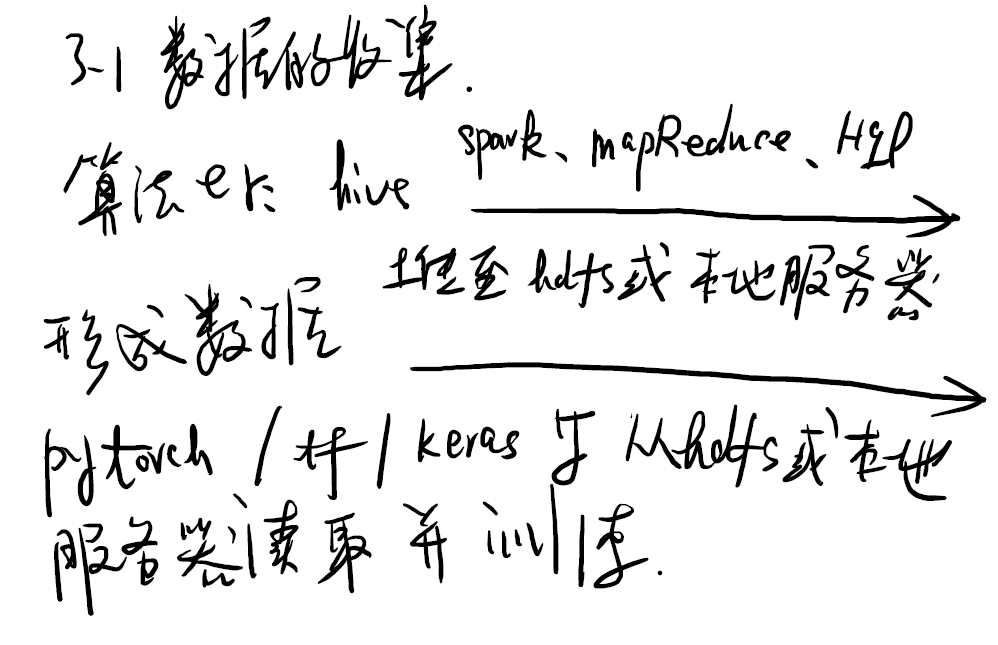 3-1 数据的收集.
算法er: hive
spark、mapReduce、Hql
推至 hdfs或 本地服务器
形成数据
pytorch / tf / keras 等 从hdfs或本地
服务器读取 并 训练.